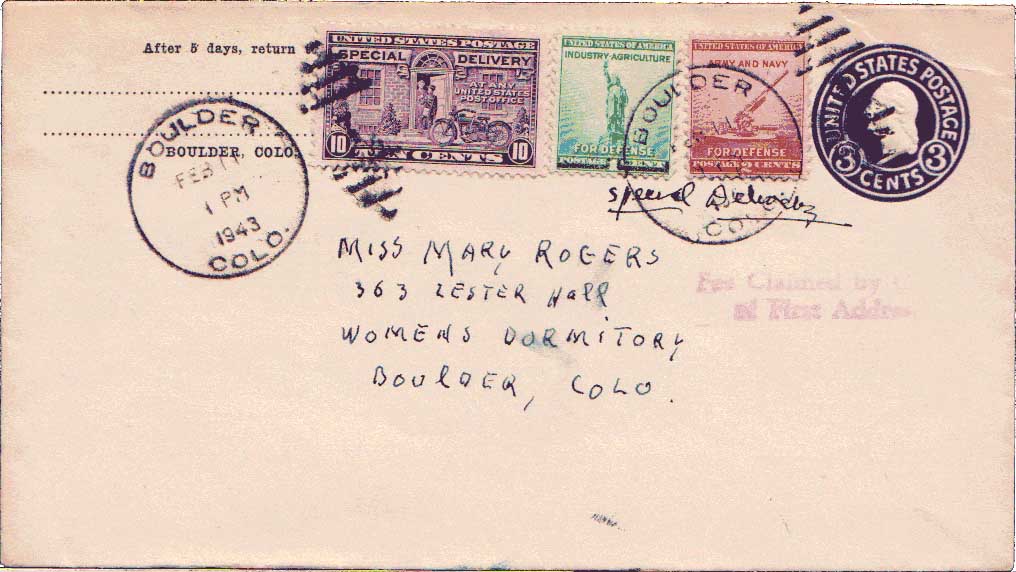 After 5 days, return
BOULDER, COLO.
BOULDER
FEB
1 PM
1943
COLO.
UNITED STATES POSTAGE
SPECIAL DELIVERY
AT ANY
UNITED STATES
POST OFFICE
10 TEN CENTS 10
UNITED STATES OF AMERICA
INDUSTRY-AGRICULTURE
FOR DEFENSE
POSTAGE 1 CENT
UNITED STATES OF AMERICA
ARMY AND NAVY
FOR DEFENSE
POSTAGE 2 CENTS
BOULDER
COLO.
UNITED STATES POSTAGE
3 CENTS 3
Special Delivery
MISS MARY ROGERS
363 LESTER HALL
WOMENS DORMITORY
BOULDER, COLO.
Fee Claimed by
at First Address